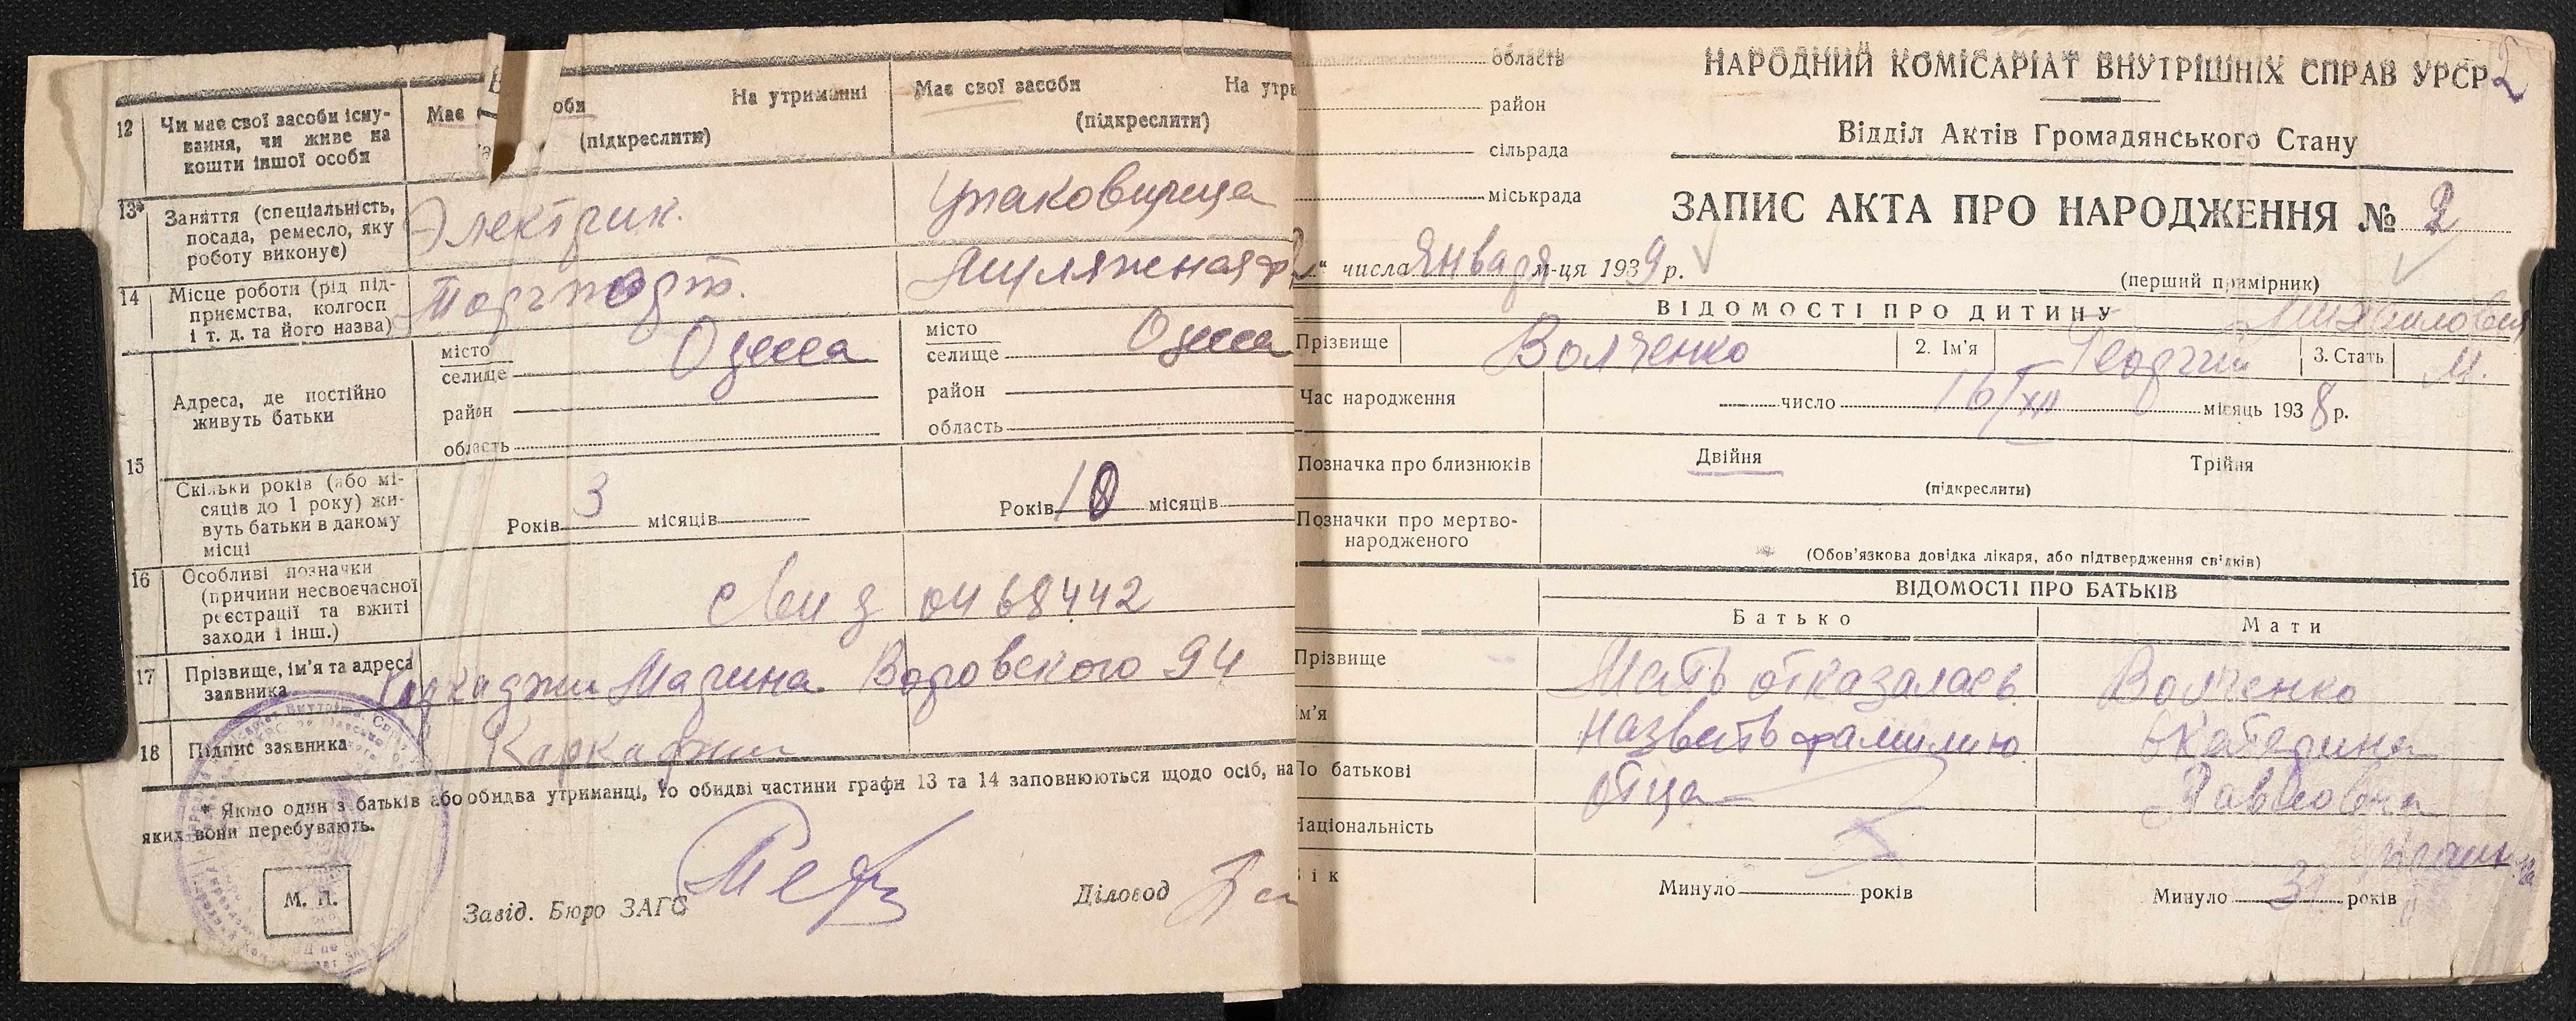 12 Чи має свої засоби існу-
вання, чи живе на
кошти іншої особи
Має оби На утриманні
(підкреслити)
Має свої засоби На утри
(підкреслити)
13* Заняття (спеціальність,
посада, ремесло, яку
роботу виконує)
Электрик.
Упаковщица
14 Місце роботи (рід під-
приємства, колгосп
і т. д. та його назва)
Торгпорт.
15 Адреса, де постійно
живуть батьки
місто
селище Одесса
район
область
місто
селище Одесса
район
область
Скільки років (або мі-
сяців до 1 року) жи-
вуть батьки в даному
місці
Років 3 місяців
Років 10 місяців
16 Особливі позначки
(причини несвоєчасної
реєстрації та вжиті
заходи і інш.)
0468442
17 Прізвище, ім'я та адреса
заявника
Каркаджи Марина Воровского 94
18 Підпис заявника
Каркаджи
* Якщо один з батьків або обидва утриманці, то обидві частини графи 13 та 14 заповнюються щодо осіб, на
яких вони перебувають.
М. П.
Завід. Бюро ЗАГС
Діловод
область
район
сільрада
міськрада
НАРОДНИЙ КОМІСАРІАТ ВНУТРІШНІХ СПРАВ УРСР
2
Відділ Актів Громадянського Стану
ЗАПИС АКТА ПРО НАРОДЖЕННЯ № 2
“ числа Января м-ця 1939 р.
(перший примірник)
ВІДОМОСТІ ПРО ДИТИНУ
Михайлович
Прізвище Волченко 2. Ім'я Георгий 3. Стать М.
Час народження число 16/XII місяць 1938 р.
Позначка про близнюків Двійня Трійня
(підкреслити)
Позначки про мертво-
народженого
(Обов'язкова довідка лікаря, або підтвердження свідків)
ВІДОМОСТІ ПРО БАТЬКІВ
Батько Мати
Прізвище Мать отказалась Волченко
Ім'я назвать фамилию Екатерина
По батькові отца Павловна
Національність
Вік Минуло років Минуло років